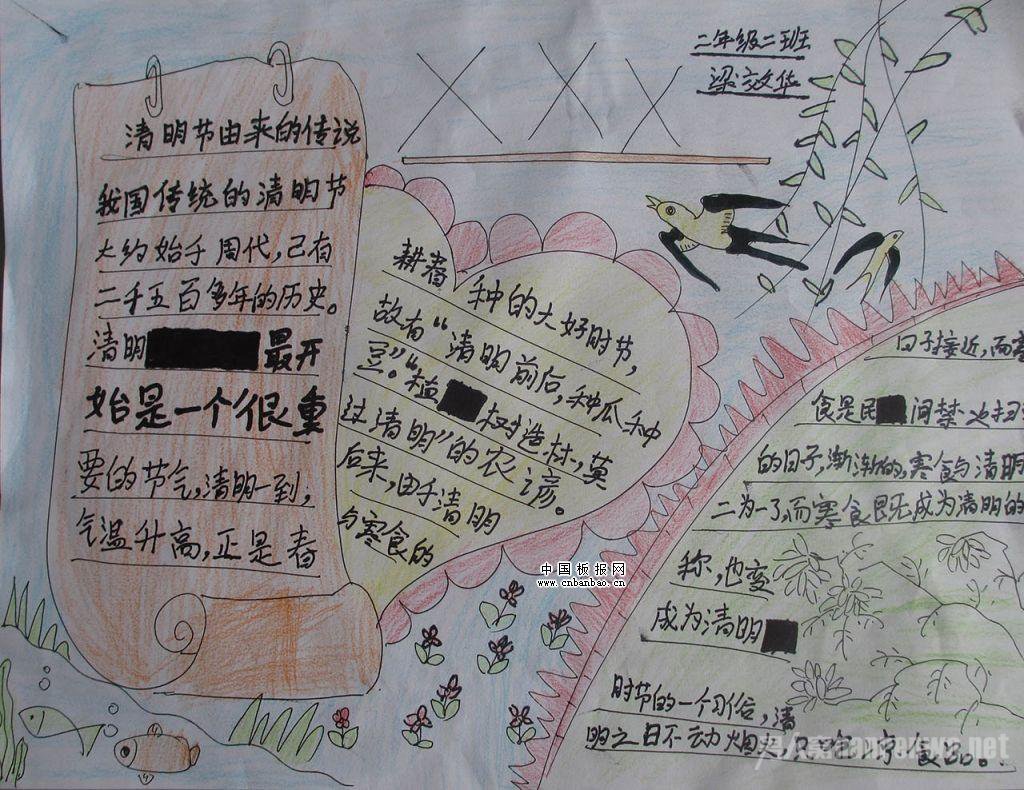 二年级二班
梁效华
清明节由来的传说
我国传统的清明节
大约始于周代,已有
二千五百多年的历史。
清明 最开
始是一个很重
要的节气,清明一到,
气温升高,正是春
耕春种的大好时节,
故有“清明前后,种瓜种
豆”。“植 树造林,莫
过清明”的农谚。
后来,由于清明
与寒食的
日子接近,而寒
食是民 间禁火扫
的日子,渐渐的,寒食与清明
二为一了,而寒食既成为清明的
称,也变
成为清明
时节的一个习俗,清
明之日不动烟火,只吃凉食品。
中国板报网
www.cnbanbao.cn